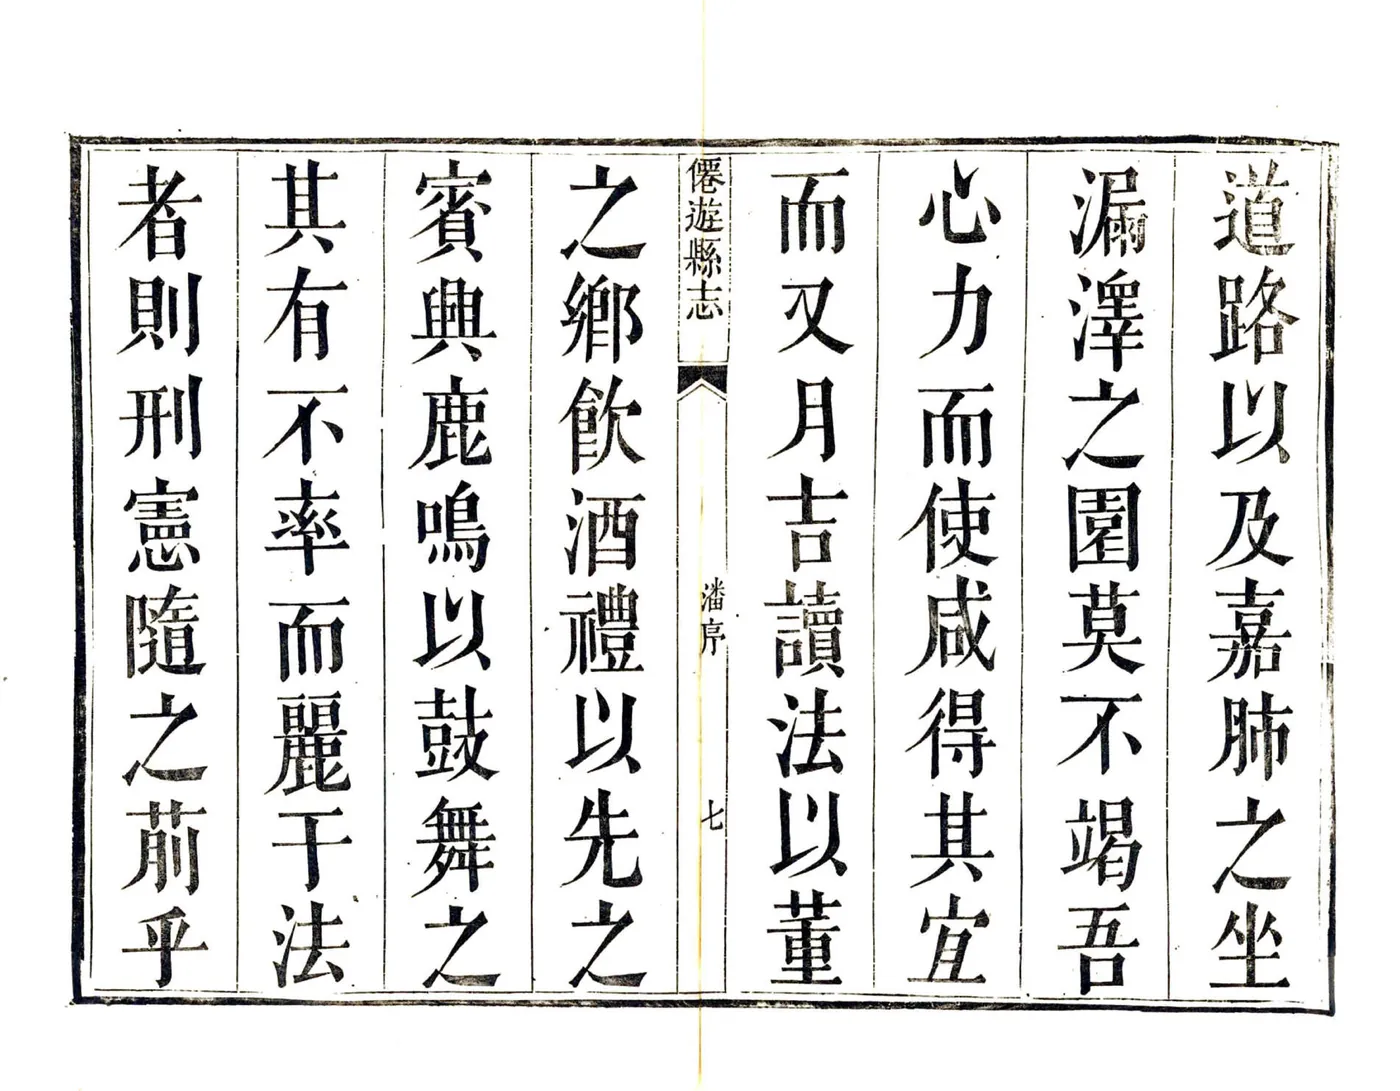 道路以及嘉肺之坐
漏澤之園莫不竭吾
心力而使咸得其宜
而又月吉讀法以董
僊遊縣志
潘序
七
之鄉飲酒禮以先之
賓興鹿鳴以鼓舞之
其有不率而麗干法
者則刑憲隨之荊乎